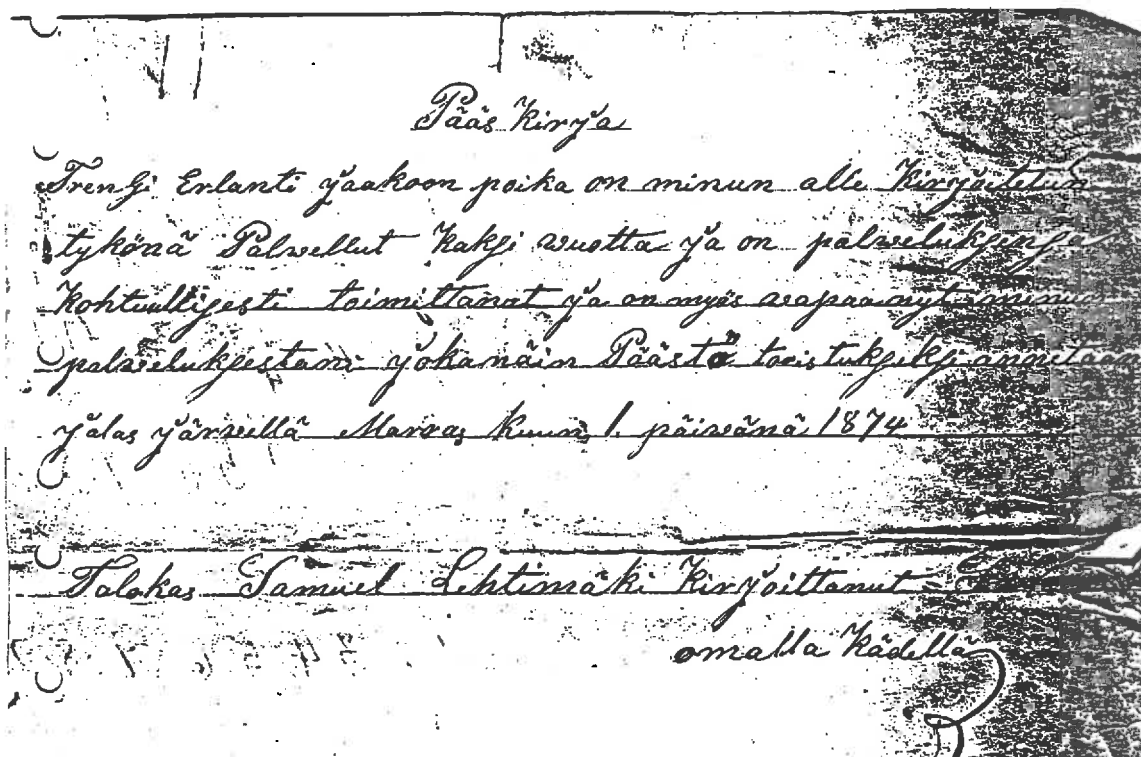 Pääs Kirja
Trengi Erlanti jaakoon poika on minun alle Kirjoitetun
tykönä Palvellut Kaksi wuotta ja on palweluksensa
Kohtuullisesti toimittanut ja on myös wapaa nyt minun
palweluksestani jokanäin Päästö toistukseksi annetaan
jalas järwellä Marras Kuun 1. päiwänä 1874
Talokas Samuel Lehtimäki Kirjoittanut
omalla Kädellä